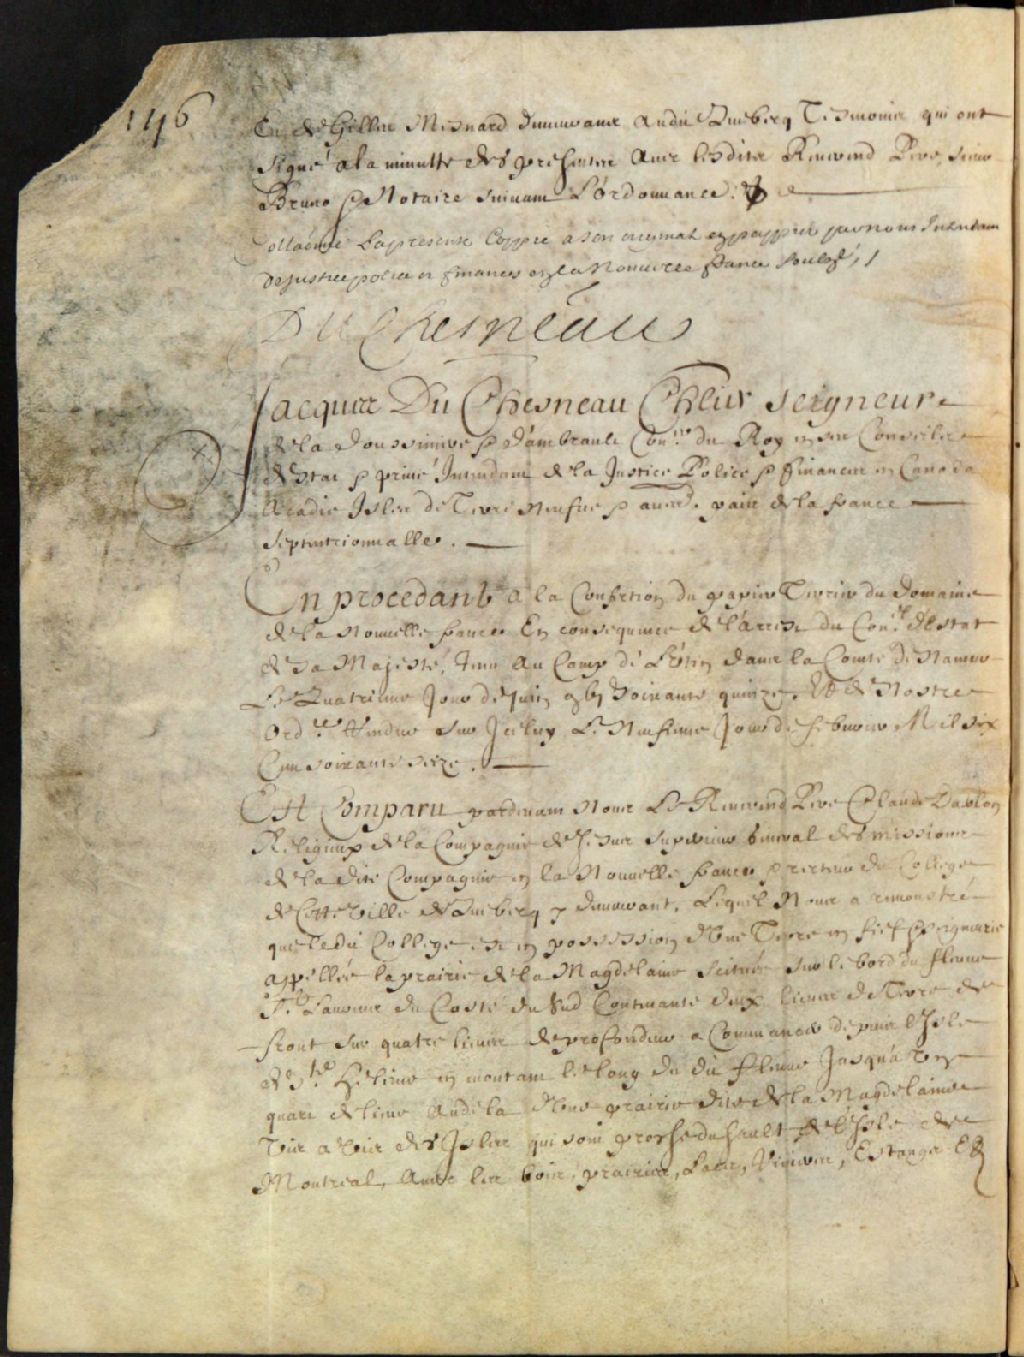 146
Et de Gilles Mesnard demeurans audit Quebecq Tesmoins qui ont
signé a la minutte des presentes Avec lesdits Reverend Pere, Sieur
Bruno & Notaire suivant L'ordonnance.
Collationné La presente Coppie a son original en pappier par nous Intendant
de justice police et finances en la Nouvelle france soubs.
DuChesneau
Jacques Du Chesneau Chlier seigneur
de la Doussiniere & d'ambrault Con.er du Roy en ses Conseils
d'Estat & privé Intendant de la Justice Police & finances en Canada
Acadie Isles de Terre Neufve & autres pais de la france
septentrionnalle.
En procedant a la Confection du papier Terrier du domaine
de la Nouvelle france En consequence de l'arrest du Con.el d'Estat
de Sa Majesté, tenu au Camp de Latin dans la Comté de Namur
Le Quatrieme Jour de Juin soixante quinze. Et de Nostre
Ord.ce Rendue sur Iceluy Le Neufieme Jour de febvrier Mil six
Cens soixante seize.
Est Comparu pardevant Nous Le Reverend Pere Claude Dablon
Religieux de la Compagnie de Jesus superieur general des missions
de la dite Compagnie en la Nouvelle france & recteur du College
de Cette Ville de Quebecq y demeurant, Lequel Nous a remonstré
que ledit College est en possession d'Une Terre en fief & seigneurie
appellée la prairie de la Magdelaine scituée sur le bord du fleuve
St. Laurens du Costé du Sud Contenante deux lieues de Terre de
front sur quatre lieues de profondeur a Commencer depuis l'Isle
de Ste. Heleine en montant le long du dit fleuve Jusqu'a Un
quart de lieue audela d'Une prairie dite de la Magdelaine
Vis a Vis des Isles qui sont proche du sault de l'Isle de
Montreal, Avec les bois, prairies, Lacs, Rivieres, Estangs Et